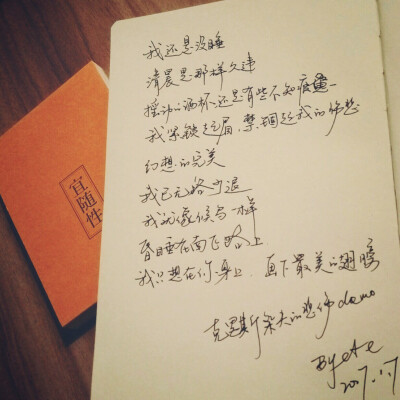 我还是没睡
清晨是那样久违
摇动的酒杯 还是有些不知疲惫
我紧锁起眉,禁锢起我的伤悲
幻想的完美
我已无路可退
我就像候鸟一样
昏睡在南飞路上
我只想在你身上,画下最美的翅膀
克里斯朵夫的悲伤demo
By
2017.1.7
宜随性